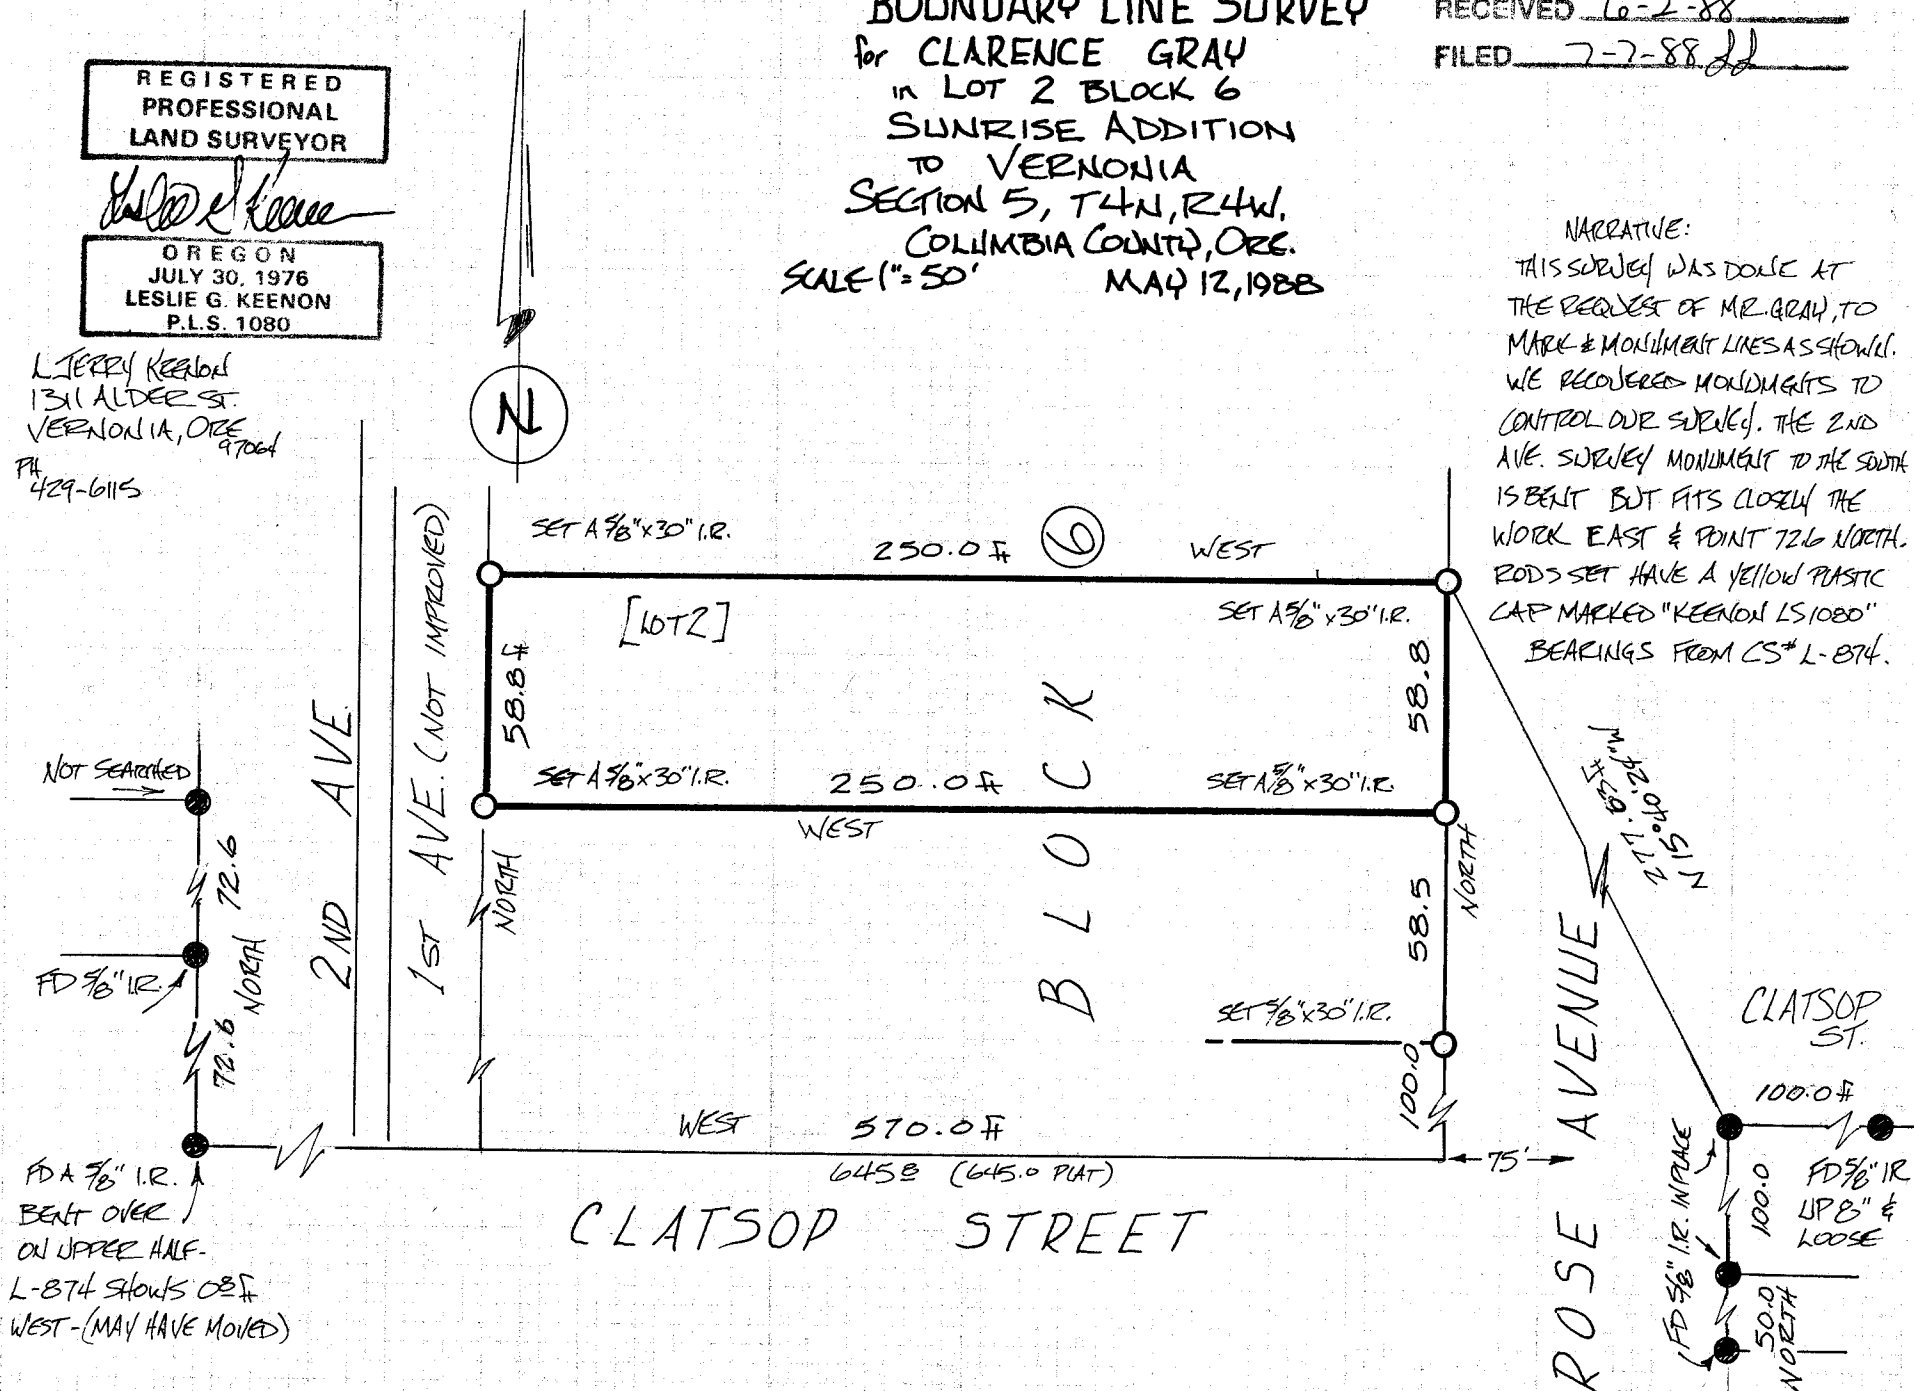 BOUNDARY LINE SURVEY
for CLARENCE GRAY
in LOT 2 BLOCK 6
SUNRISE ADDITION
TO VERNONIA
SECTION 5, T4N, R4W.
COLUMBIA COUNTY, ORE.
SCALE 1"=50' MAY 12, 1988
RECEIVED 6-2-88
FILED 7-7-88
REGISTERED
PROFESSIONAL
LAND SURVEYOR
OREGON
JULY 30, 1976
LESLIE G. KEENON
P.L.S. 1080
L JERRY KEENON
1311 ALDER ST.
VERNONIA, ORE
97064
PH
429-6115
N
NARRATIVE:
THIS SURVEY WAS DONE AT
THE REQUEST OF MR. GRAY, TO
MARK & MONUMENT LINES AS SHOWN.
WE RECOVERED MONUMENTS TO
CONTROL OUR SURVEY. THE 2ND
AVE. SURVEY MONUMENT TO THE SOUTH
IS BENT BUT FITS CLOSELY THE
WORK EAST & POINT 72.6 NORTH.
RODS SET HAVE A YELLOW PLASTIC
CAP MARKED "KEENON LS1080"
BEARINGS FROM CS# L-874.
SET A 5/8"x30" I.R.
250.0 ft
6
WEST
[LOT 2]
SET A 5/8"x30" I.R.
58.8 ft
58.8
SET A 5/8"x30" I.R.
250.0 ft
SET A 5/8"x30" I.R.
WEST
BLOCK
NORTH
NORTH
58.5
SET 5/8"x30" I.R.
100.0
N 15°40'24" W
277.83 ft
NOT SEARCHED
72.6
FD 5/8" I.R.
NORTH
72.6
2ND AVE.
1ST AVE. (NOT IMPROVED)
WEST 570.0 ft
645.8 (645.0 PLAT)
75'
CLATSOP STREET
ROSE AVENUE
CLATSOP
ST.
100.0 ft
FD 5/8" IR
UP 8" &
LOOSE
100.0
FD 5/8" I.R. IN PLACE
50.0
NORTH
FD A 5/8" I.R.
BENT OVER
ON UPPER HALF-
L-874 SHOWS 0.8 ft
WEST-(MAY HAVE MOVED)